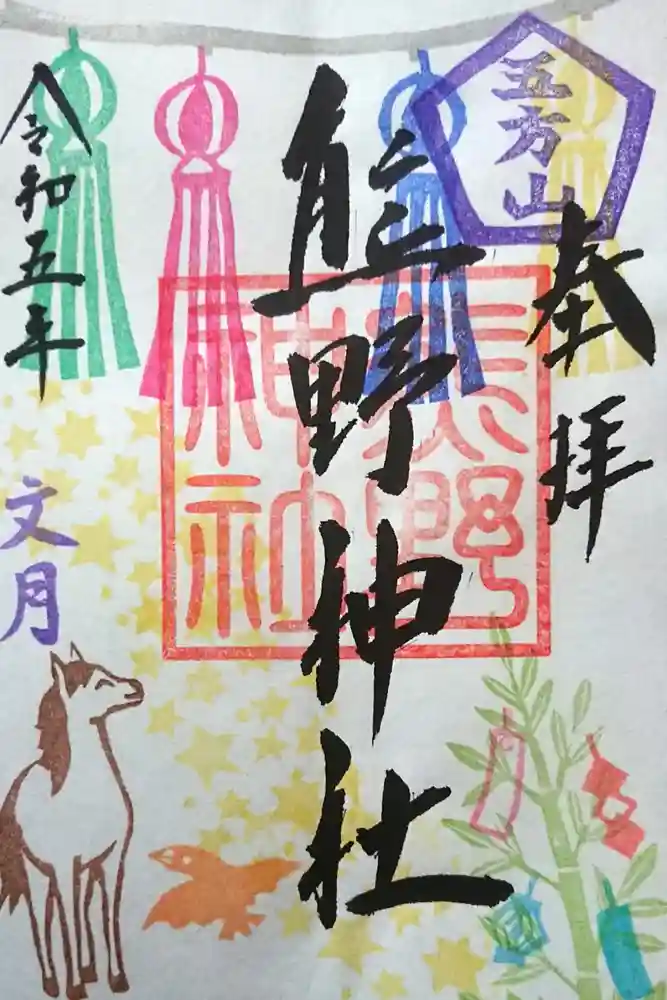 五方山
奉拝
熊野神社
熊野
神社
令和五年
文月